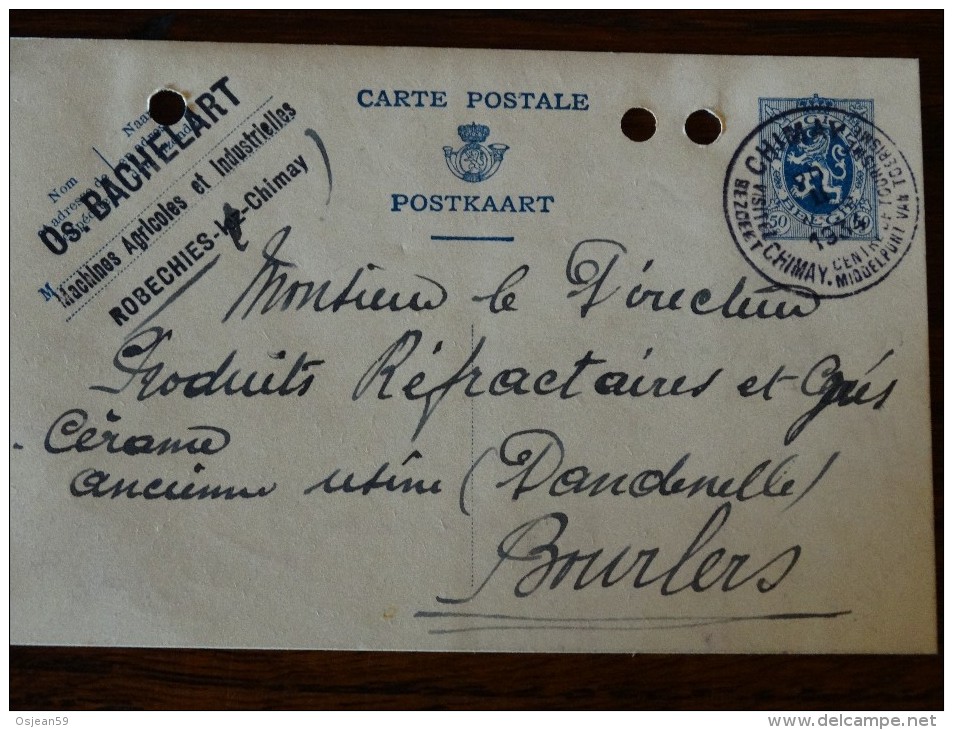 Os. BACHELART
Machines Agricoles et Industrielles
ROBECHIES-(-Chimay)
Nom
Naam
M
CARTE POSTALE
POSTKAART
CHIMAY
BELGIE
50
VISITEZ CHIMAY. CENTRE DE TOURISME
BEZOEKT CHIMAY. MIDDELPUNT VAN TOERISME
Monsieur le Directeur
Produits Réfractaires et Grés
- Cérame
ancienne usine (Dandenelle)
Bourlers
Osjean59
www.delcampe.net